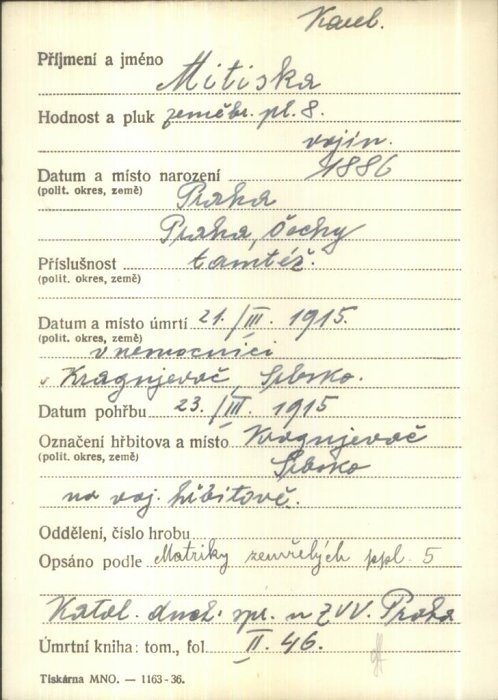 Karel.
Příjmení a jméno Mitiska
Hodnost a pluk zeměbr. pl. 8.
vojín.
Datum a místo narození 1886
(polit. okres, země) Praha
Praha, Čechy
Příslušnost tamtéž.
(polit. okres, země)
Datum a místo úmrtí 21./III. 1915.
(polit. okres, země)
v nemocnici
v Kragujevač, Srbsko.
Datum pohřbu 23./III. 1915
Označení hřbitova a místo Kragujevač
(polit. okres, země)
Srbsko
na voj. hřbitově.
Oddělení, číslo hrobu
Opsáno podle Matriky zemřelých ppl. 5
Katol. duch. spr. u ZVV. Praha
Úmrtní kniha: tom., fol. II. 46.
Tiskárna MNO. — 1163-36.